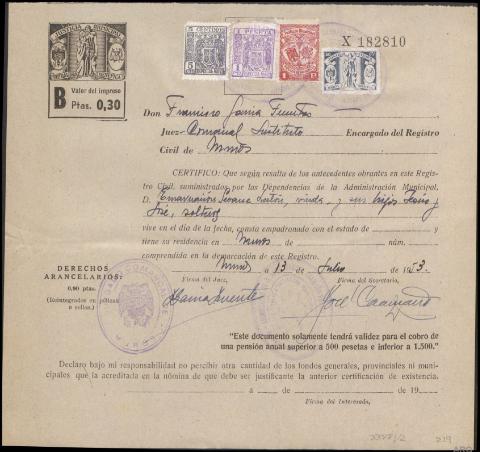 JUSTICIA MUNICIPAL
B Valor del impreso
Ptas. 0,30
5 CENTIMOS
1 PESETA
X 182810
Don Francisco Garcia Fuentes
Juez Comarcal Sustituto Encargado del Registro
Civil de Muros
CERTIFICO: Que según resulta de los antecedentes obrantes en este Regis-
tro Civil, suministrados por las Dependencias de la Administración Municipal,
D. viuda y sus hijos y
José, solteros
vive en el día de la fecha, consta empadronado con el estado de
y tiene su residencia en Muros de núm.
comprendida en la demarcación de este Registro.
Muros a 13 de Julio de 1953.
DERECHOS
ARANCELARIOS:
0,90 ptas.
(Reintegrados en pólizas
o sellos.)
Firma del Juez,
Firma del Secretario,
"Este documento solamente tendrá validez para el cobro de
una pensión anual superior a 500 pesetas e inferior a 1.500."
Declaro bajo mi responsabilidad no percibir otra cantidad de los fondos generales, provinciales ni muni-
cipales que la acreditada en la nómina de que debe ser justificante la anterior certificación de existencia.
a de de 19
Firma del Interesado,